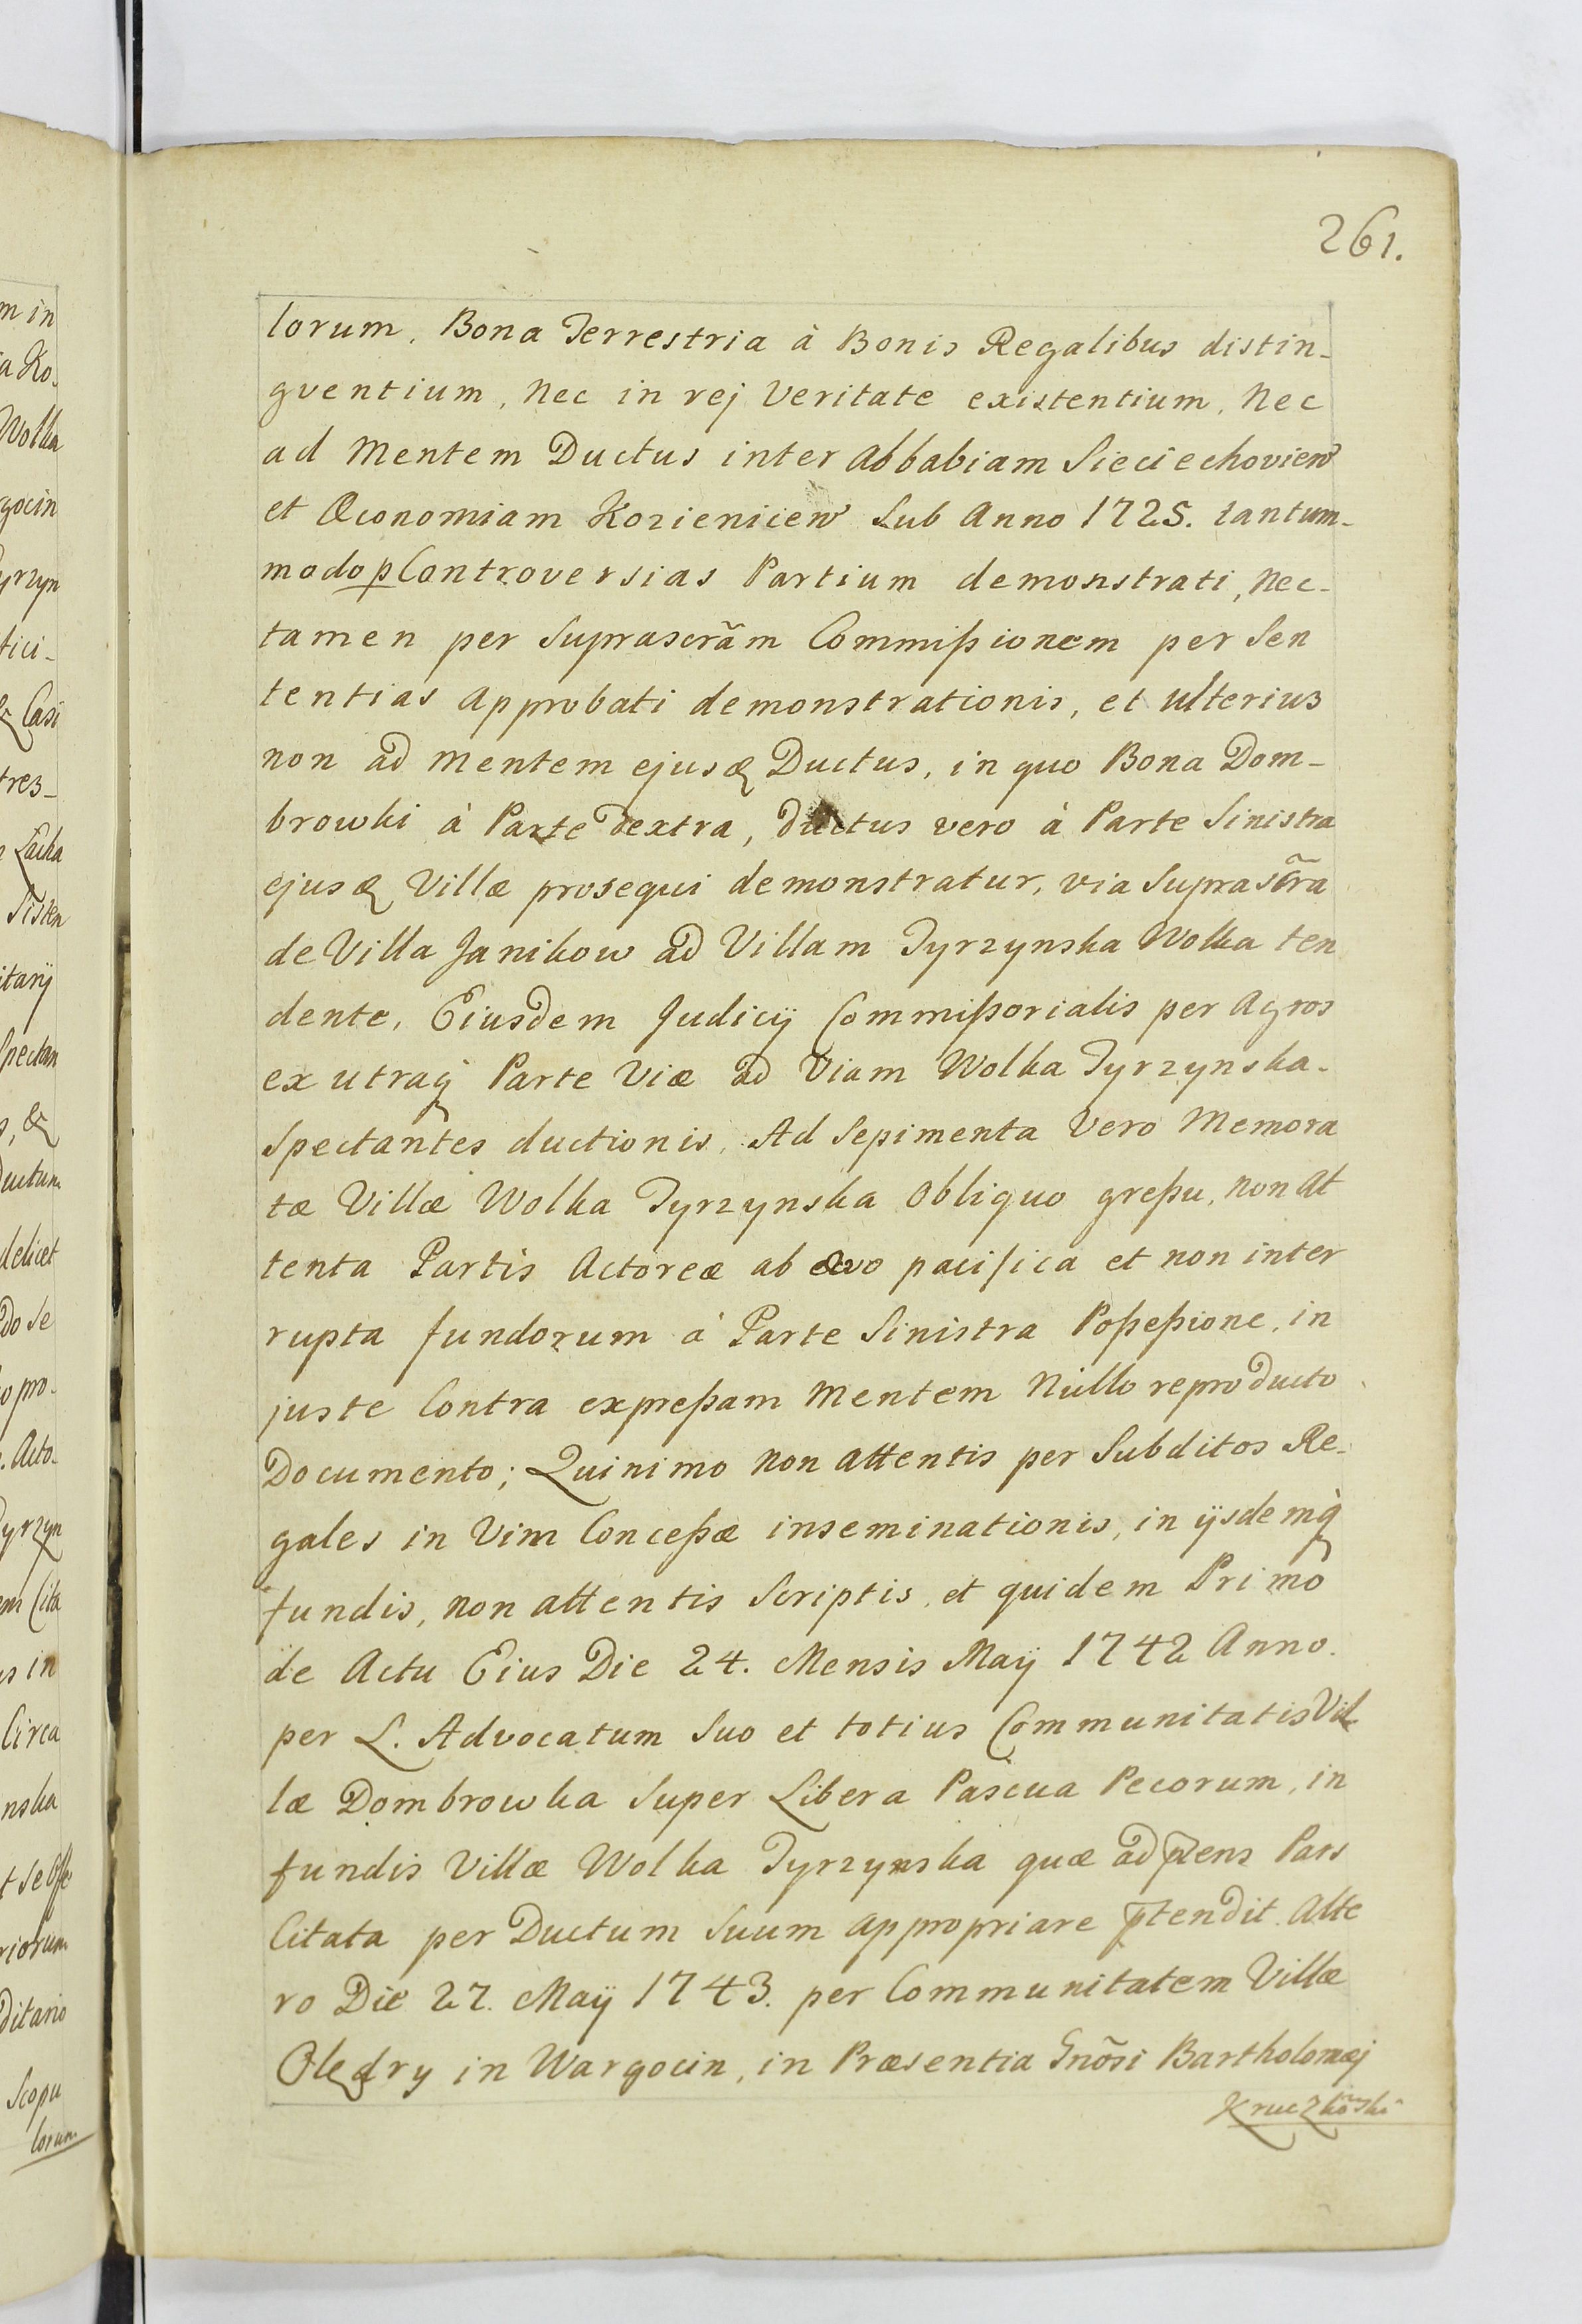 261.
lorum, Bona Terrestria à Bonis Regalibus distin-
gventium, Nec in rej Veritate existentium, Nec
ad Mentem Ductus inter Abbabiam Sieciechovien
et Œconomiam Kozienicen Sub Anno 1725. tantum-
modo ꝑ Controversias Partium demonstrati, Nec-
tamen per Suprascrãm Commißionem per Sen
tentias Approbati demonstrationis, et ulterius
non ad Mentem ejusꝗ Ductus, in quo Bona Dom-
browki à Parte dextra, ductus vero à Parte Sinistra
ejusꝗ Villæ prosequi demonstratur, via Suprascrã
de Villa Janikow ad Villam Tyrzynska Wolka ten
dente, Eiusdem Judicij Commißorialis per Agros
ex utraqꝫ Parte Viæ ad Viam Wolka Tyrzynska-
Spectantes ductionis, Ad Sepimenta Vero Memora
tæ Villæ Wolka Tyrzynska Obliquo greßu, non At
tenta Partis Actoreæ ab ævo pacifica et non inter
rupta fundorum à Parte Sinistra Poßeßione, in
juste Contra expreßam Mentem Nullo reproducto
Documento; Quinimo non attentis per Subditos Re-
gales in Vim Conceßæ inseminationis, in ijsdemqꝫ
fundis, non attentis Scriptis, et quidem Primo
de Actu Eius Die 24. Mensis Maij 1742 Anno.
per L. Advocatum Suo et totius Communitatis Vil
læ Dombrowka Super Libera Pascua Pecorum, in
fundis Villæ Wolka Tyrzynska quæ ad p̃ens Pars
Citata per Ductum Suum appropriare p̃tendit. Alte
ro Die 27. Maij 1743. per Communitatem Villæ
Olędry in Wargocin, in Præsentia Gnõsi Bartholomæj
m in
a Ko.
Wolka
gocin
yrzyn
tici-
& Casi
tres-
Łacha
Sisten
itarij
Spectan
s, &
Ductum
delicet
do Se
o pro-
. Acto-
Tyrzyn
em Cita
s in
Circa
nska
riorum
ditario
Scopu
lorum